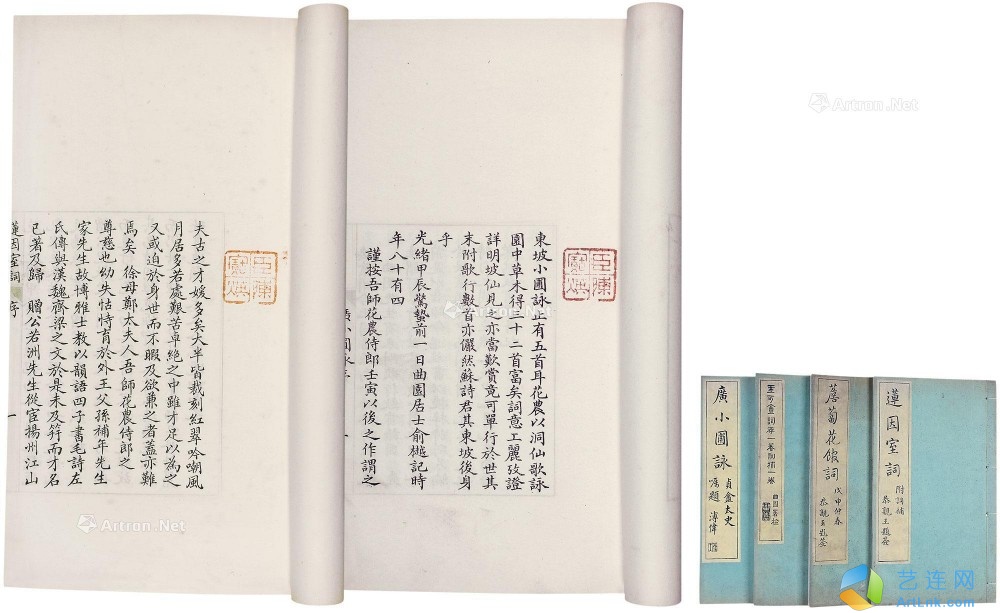 東坡小圃詠止有五首耳花農以洞仙歌詠
園中草木得三十二首富矣詞意工麗攷證
詳明坡仙見之亦當歎賞竟可單行於世其
末附歌行數首亦儼然蘇詩君其東坡後身
乎
光緒甲辰驚蟄前一日曲園居士俞樾記時
年八十有四
謹按吾師花農侍郎壬寅以後之作謂之
夫古之才媛多矣大半皆裁剡紅翠吟嘲風
月居多若處艱苦卓絶之中雖才足以為之
又或迫於身世而不暇及欲兼之者蓋亦難
焉矣 徐母鄭太夫人吾師花農侍郎之
尊慈也幼失怙恃育於外王父孫補年先生
家先生故博雅士教以韻語四子書毛詩左
氏傳與漢魏齊梁之文於是未及笄而才名
已著及歸 贈公若洲先生從宦揚州江山
蓮因室詞 序
一
蓮因室詞
附詞補
蒼蔔花館詞
戊申仲春
廣小圃詠
貞盦太史
囑題 溥偉
Artron.Net
Artron.Net
Artron.Net
艺连网
ArtLnk.com